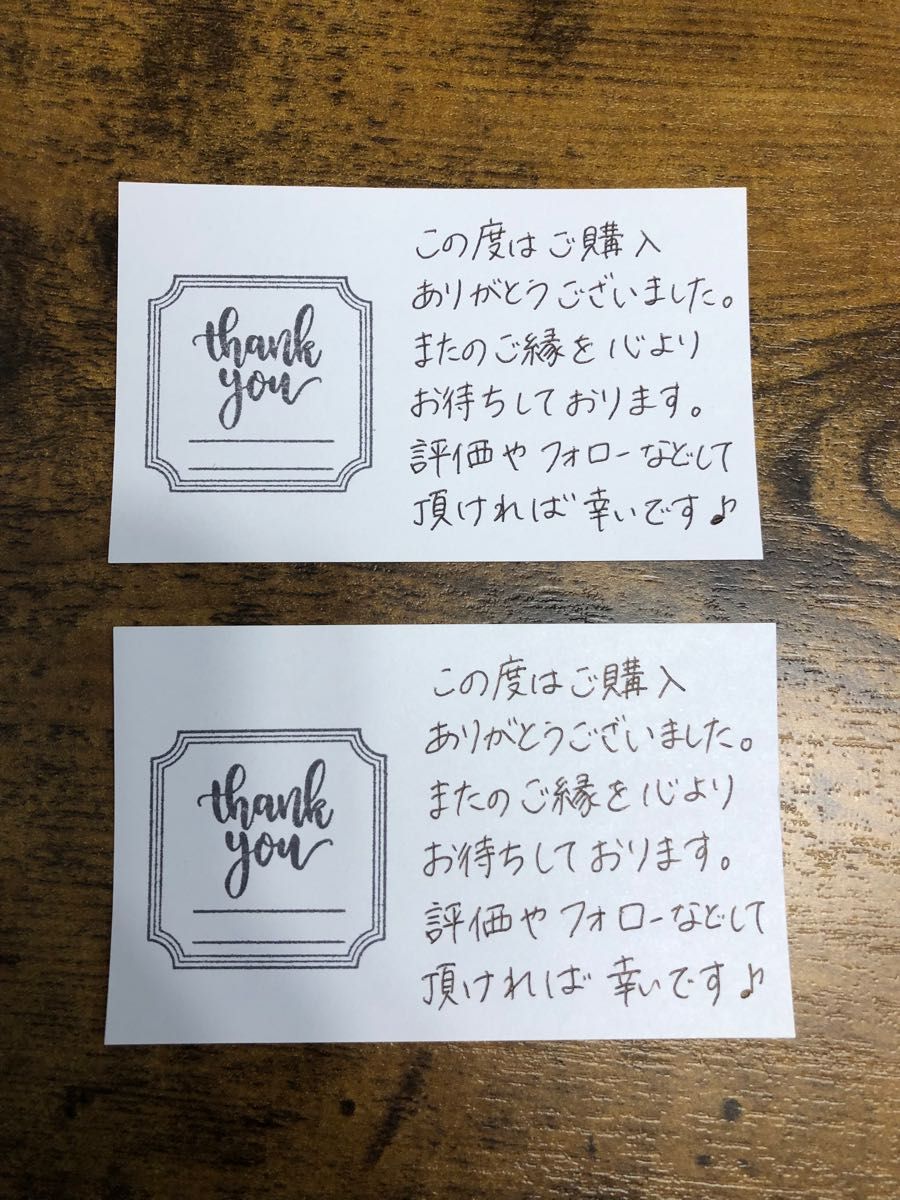 thank
you
この度はご購入
ありがとうございました。
またのご縁を心より
お待ちしております。
評価やフォローなどして
頂ければ幸いです♪
thank
you
この度はご購入
ありがとうございました。
またのご縁を心より
お待ちしております。
評価やフォローなどして
頂ければ幸いです♪